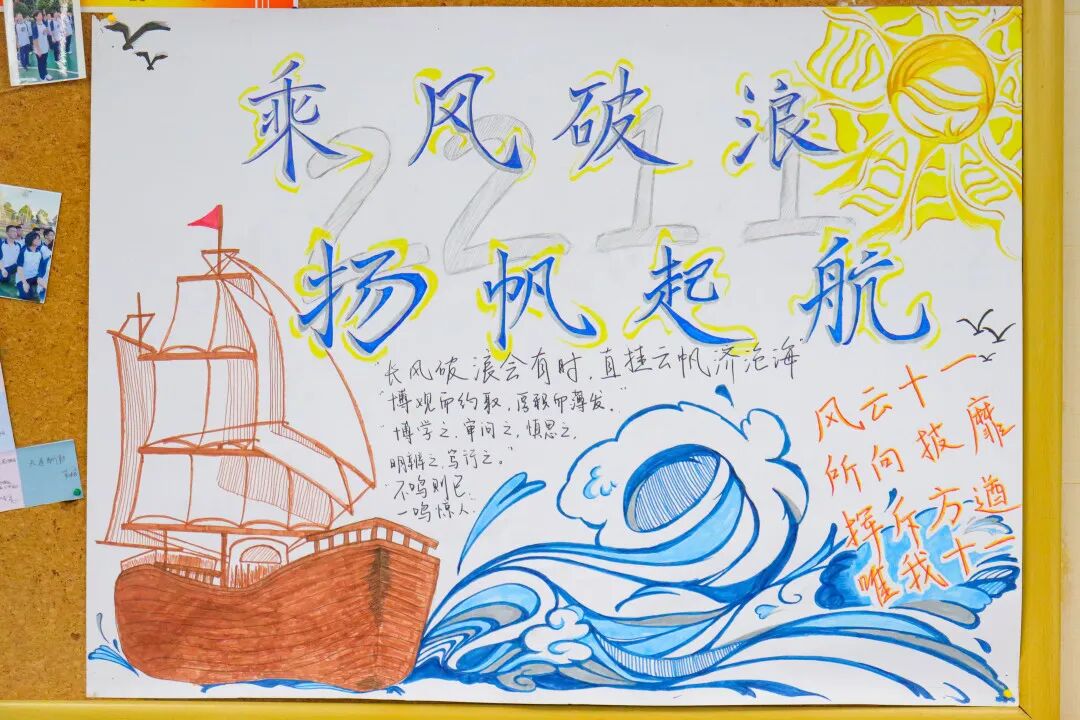 乘风破浪
2211
扬帆起航
"长风破浪会有时,直挂云帆济沧海"
"博观而约取,厚积而薄发。"
"博学之,审问之,慎思之,
明辨之,笃行之。"
"不鸣则已,
一鸣惊人.
风云十一
所向披靡
挥斥方遒
唯我十一